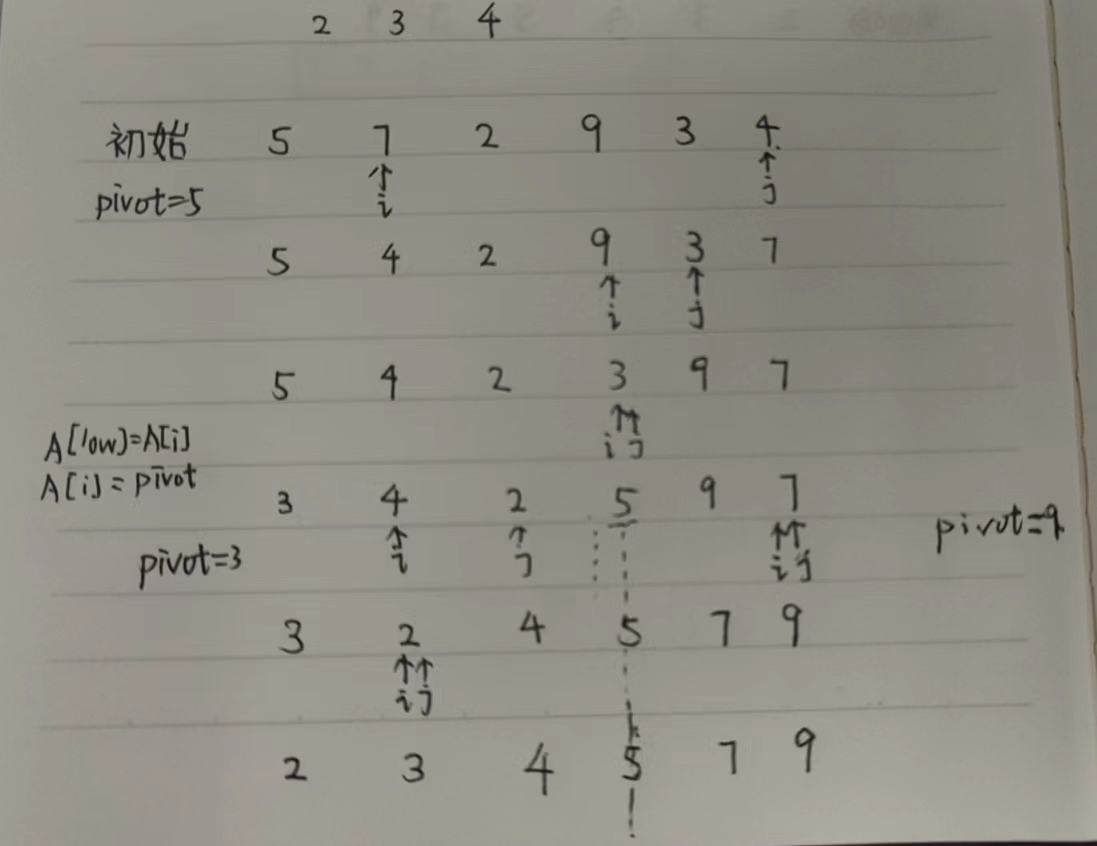 2 3 4
初始 5 7 2 9 3 4
↑ ↑
pivot=5 i j
5 4 2 9 3 7
↑ ↑
i j
5 4 2 3 9 7
↑↑
A[low]=A[i] i j
A[i]=pivot
3 4 2 5 9 7
↑ ↑ ↑↑ pivot=9
pivot=3 i j i j
3 2 4 5 7 9
↑↑
i j
2 3 4 5 7 9